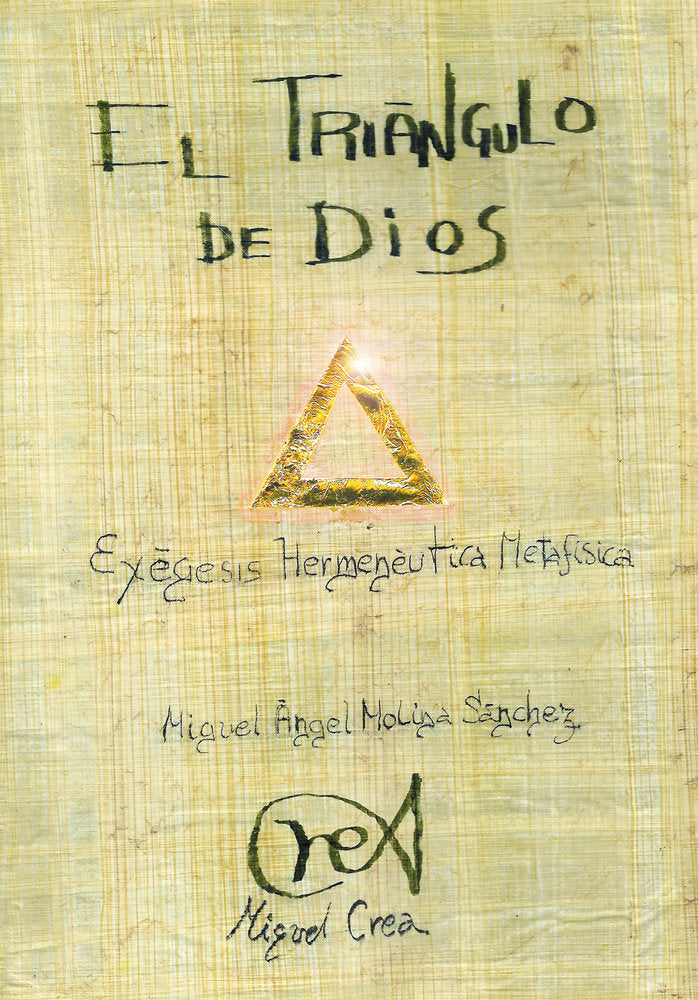 EL TRIÁNGULO
DE DIOS
Exégesis Hermenèutica Metafísica
Miguel Ángel Molina Sánchez
CreA
Miguel Crea